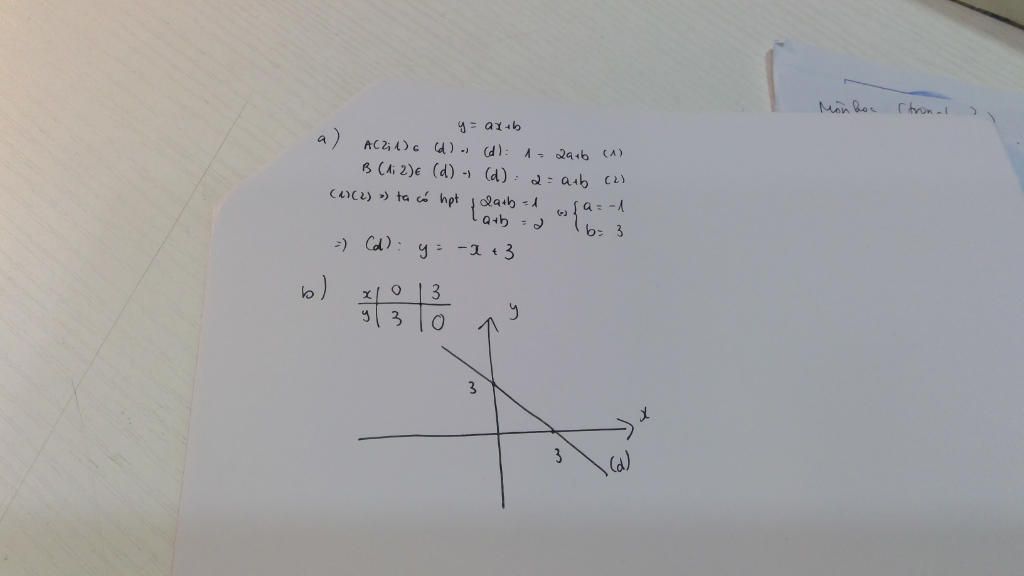 y = ax+b
a)
A(2;1) ∈ (d) → (d): 1 = 2a+b (1)
B(1;2) ∈ (d) → (d): 2 = a+b (2)
(1)(2) => ta có hpt { 2a+b = 1 <=> { a = -1
a+b = 2 b = 3
=> (d): y = -x + 3
b)
x | 0 | 3
y | 3 | 0
y
3
x
3
(d)
Môn học